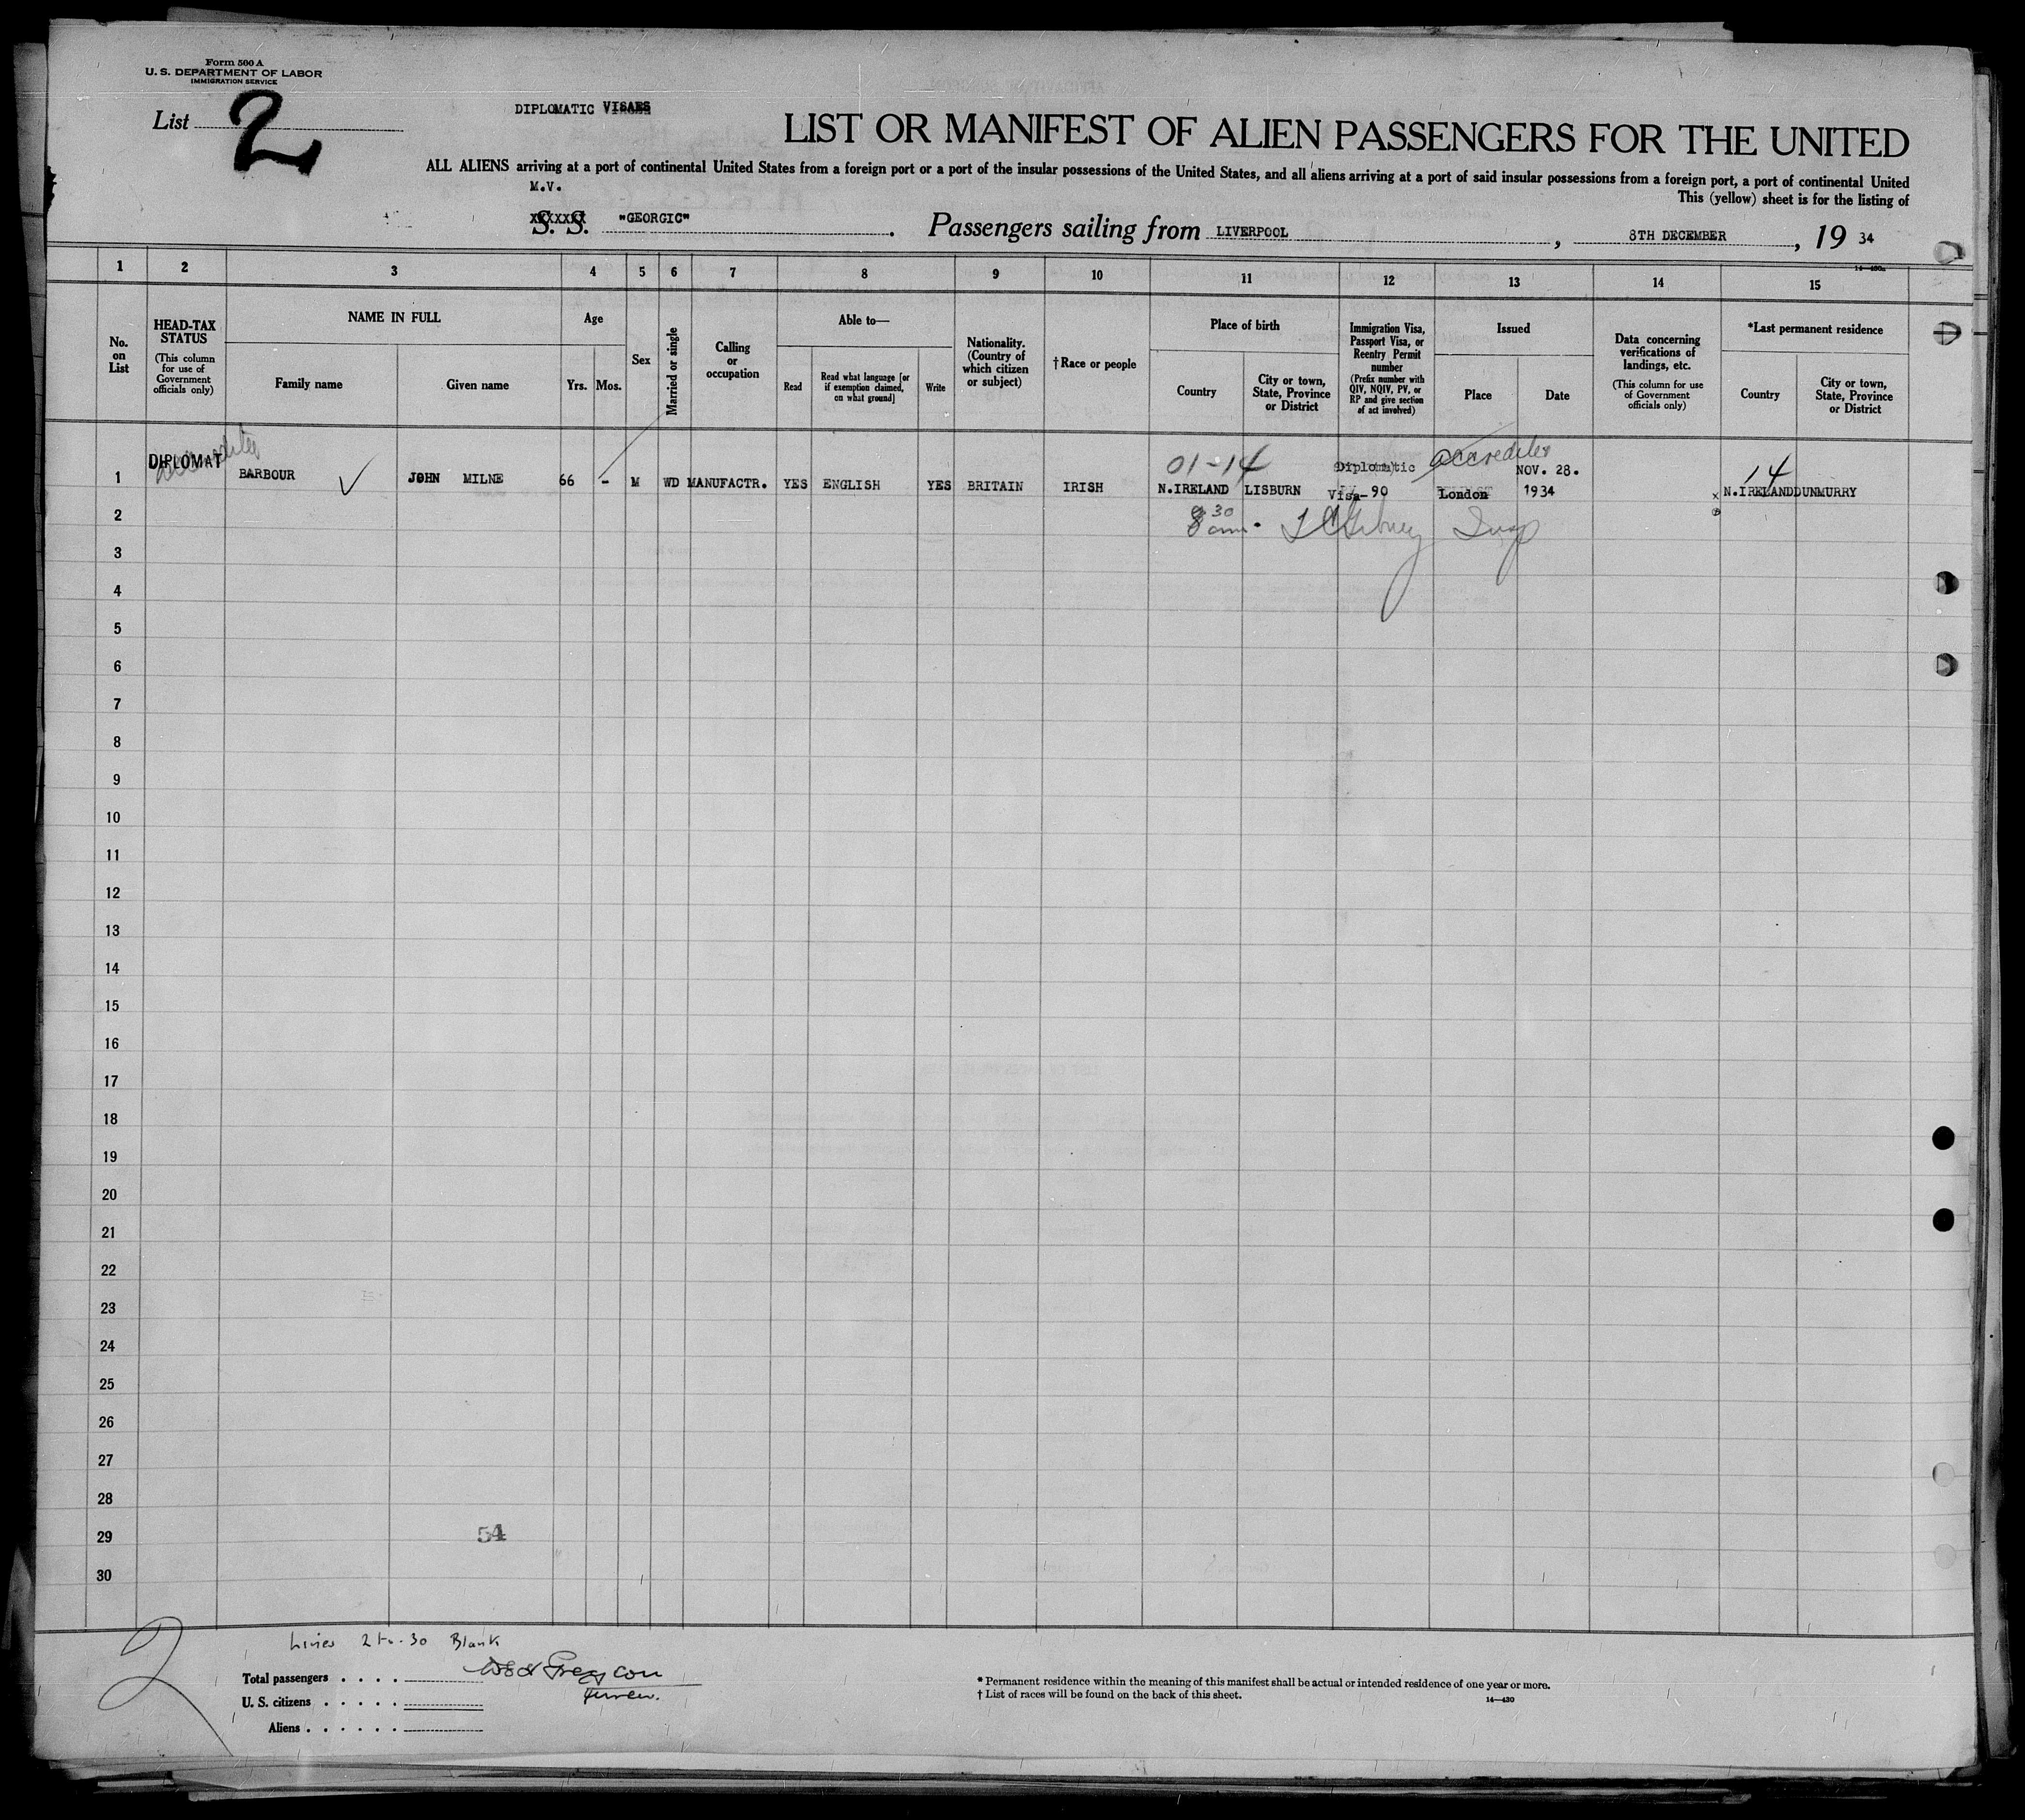 Form 500 A
U. S. DEPARTMENT OF LABOR
IMMIGRATION SERVICE
List 2
DIPLOMATIC VISAES
LIST OR MANIFEST OF ALIEN PASSENGERS FOR THE UNITED
ALL ALIENS arriving at a port of continental United States from a foreign port or a port of the insular possessions of the United States, and all aliens arriving at a port of said insular possessions from a foreign port, a port of continental United
This (yellow) sheet is for the listing of
M.V.
S. S. "GEORGIC" Passengers sailing from LIVERPOOL, 8TH DECEMBER, 19 34
14—430a
1 2 3 4 5 6 7 8 9 10 11 12 13 14 15
No. on List
HEAD-TAX STATUS
(This column for use of Government officials only)
NAME IN FULL
Family name
Given name
Age
Yrs. Mos.
Sex
Married or single
Calling or occupation
Able to—
Read
Read what language [or if exemption claimed, on what ground]
Write
Nationality. (Country of which citizen or subject)
†Race or people
Place of birth
Country
City or town, State, Province or District
Immigration Visa, Passport Visa, or Reentry Permit number
(Prefix number with QIV, NQIV, PV, or RP and give section of act involved)
Issued
Place
Date
Data concerning verifications of landings, etc.
(This column for use of Government officials only)
*Last permanent residence
Country
City or town, State, Province or District
DIPLOMAT 01-14 Diplomatic NOV. 28. 14
1 BARBOUR JOHN MILNE 66 - M WD MANUFACTR. YES ENGLISH YES BRITAIN IRISH N.IRELAND LISBURN Visa-90 London 1934 N.IRELAND DUNMURRY
2
3
4
5
6
7
8
9
10
11
12
13
14
15
16
17
18
19
20
21
22
23
24
25
26
27
28
29
54
30
2
Lines 2 to 30 Blank
Total passengers
U. S. citizens
Aliens
* Permanent residence within the meaning of this manifest shall be actual or intended residence of one year or more.
† List of races will be found on the back of this sheet.
14—430